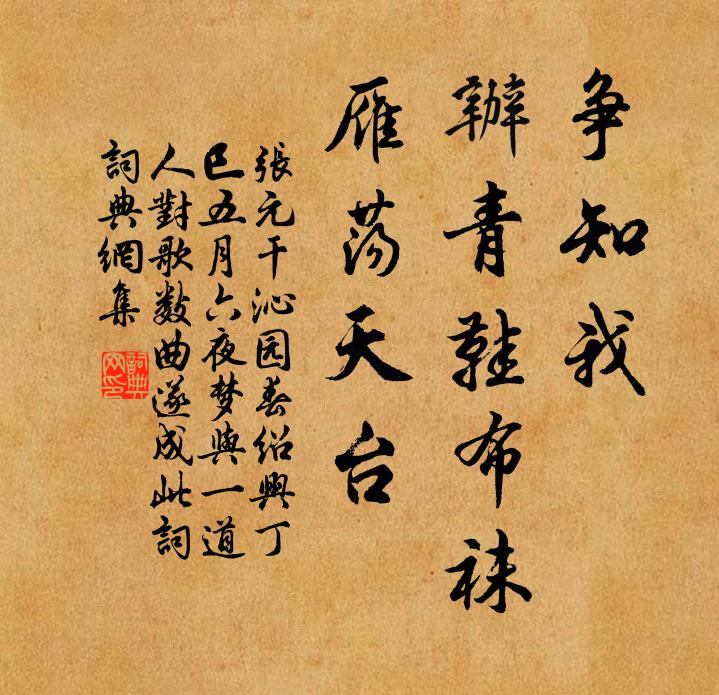 争知我
辦青鞋布袜
雁荡天台
張元干沁园春绍興丁
巳五月六夜梦與一道
人對歌数曲遂成此詞
詞典網集
詞典
网印